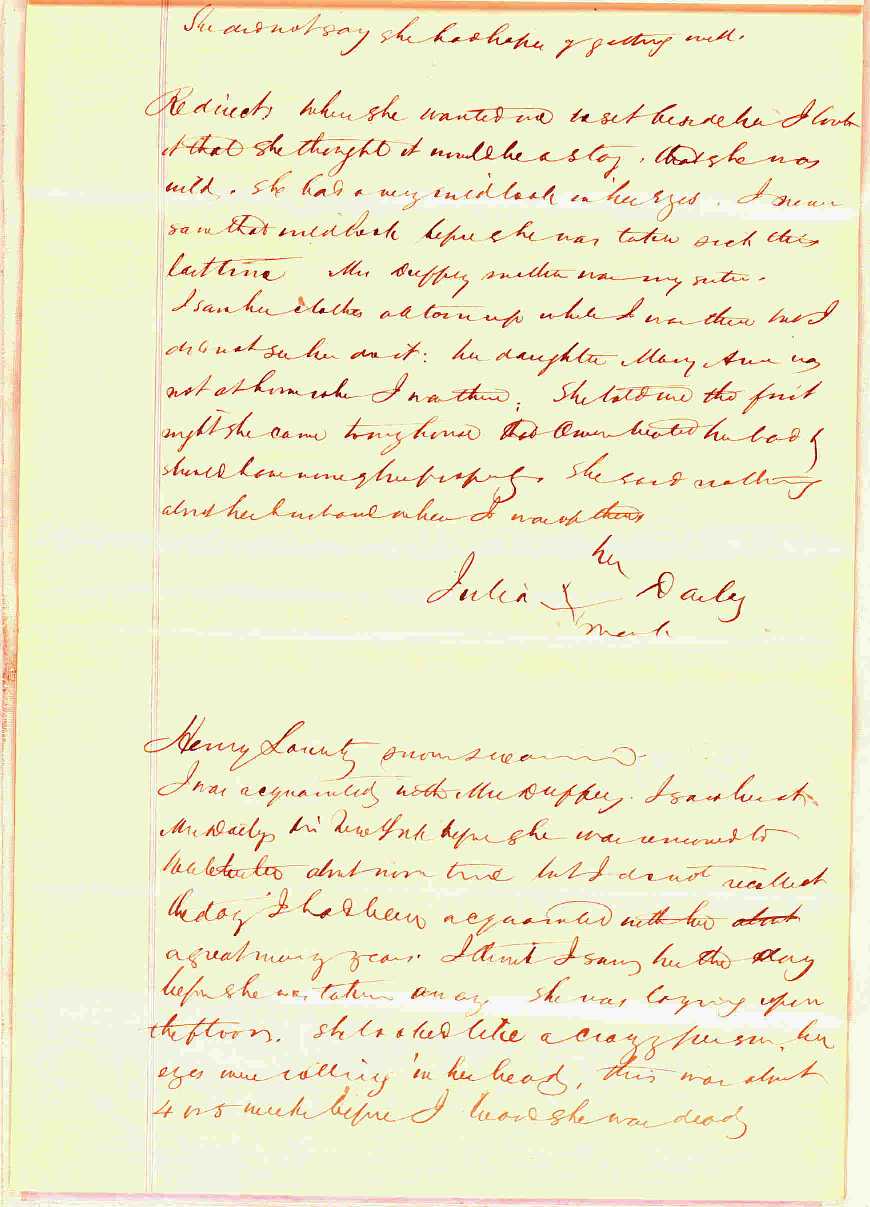 She did not say she had hopes of getting well.
Redirect, when she wanted me to set beside her I
it that she thought it would be a stay, that she was
wild. She had a very wild look in her eyes. I never
saw that wild look before she was taken sick this
last time Mrs Duffey mother was my sister.
I saw her clothes all torn up while I was there but I
did not see her do it: her daughter Mary Ann was
not at home when I was there; She told me the first
night she came to my house that Owen heated her body
should have none of her property. She said nothing
about her husband when I was up there
her
Julia X Daily
mark
Henry Lounty sworn
I was acquainted with Mrs Duffey. I saw her at
Mrs Dailys in New York before she was removed to
about noon time but I do not recollect
the day I had been acquainted with her about
a great many years. I think I saw her the day
before she was taken away she was laying upon
the floor. She looked like a crazy person, her
eyes were rolling in her head, this was about
4 or 5 weeks before I heard she was dead